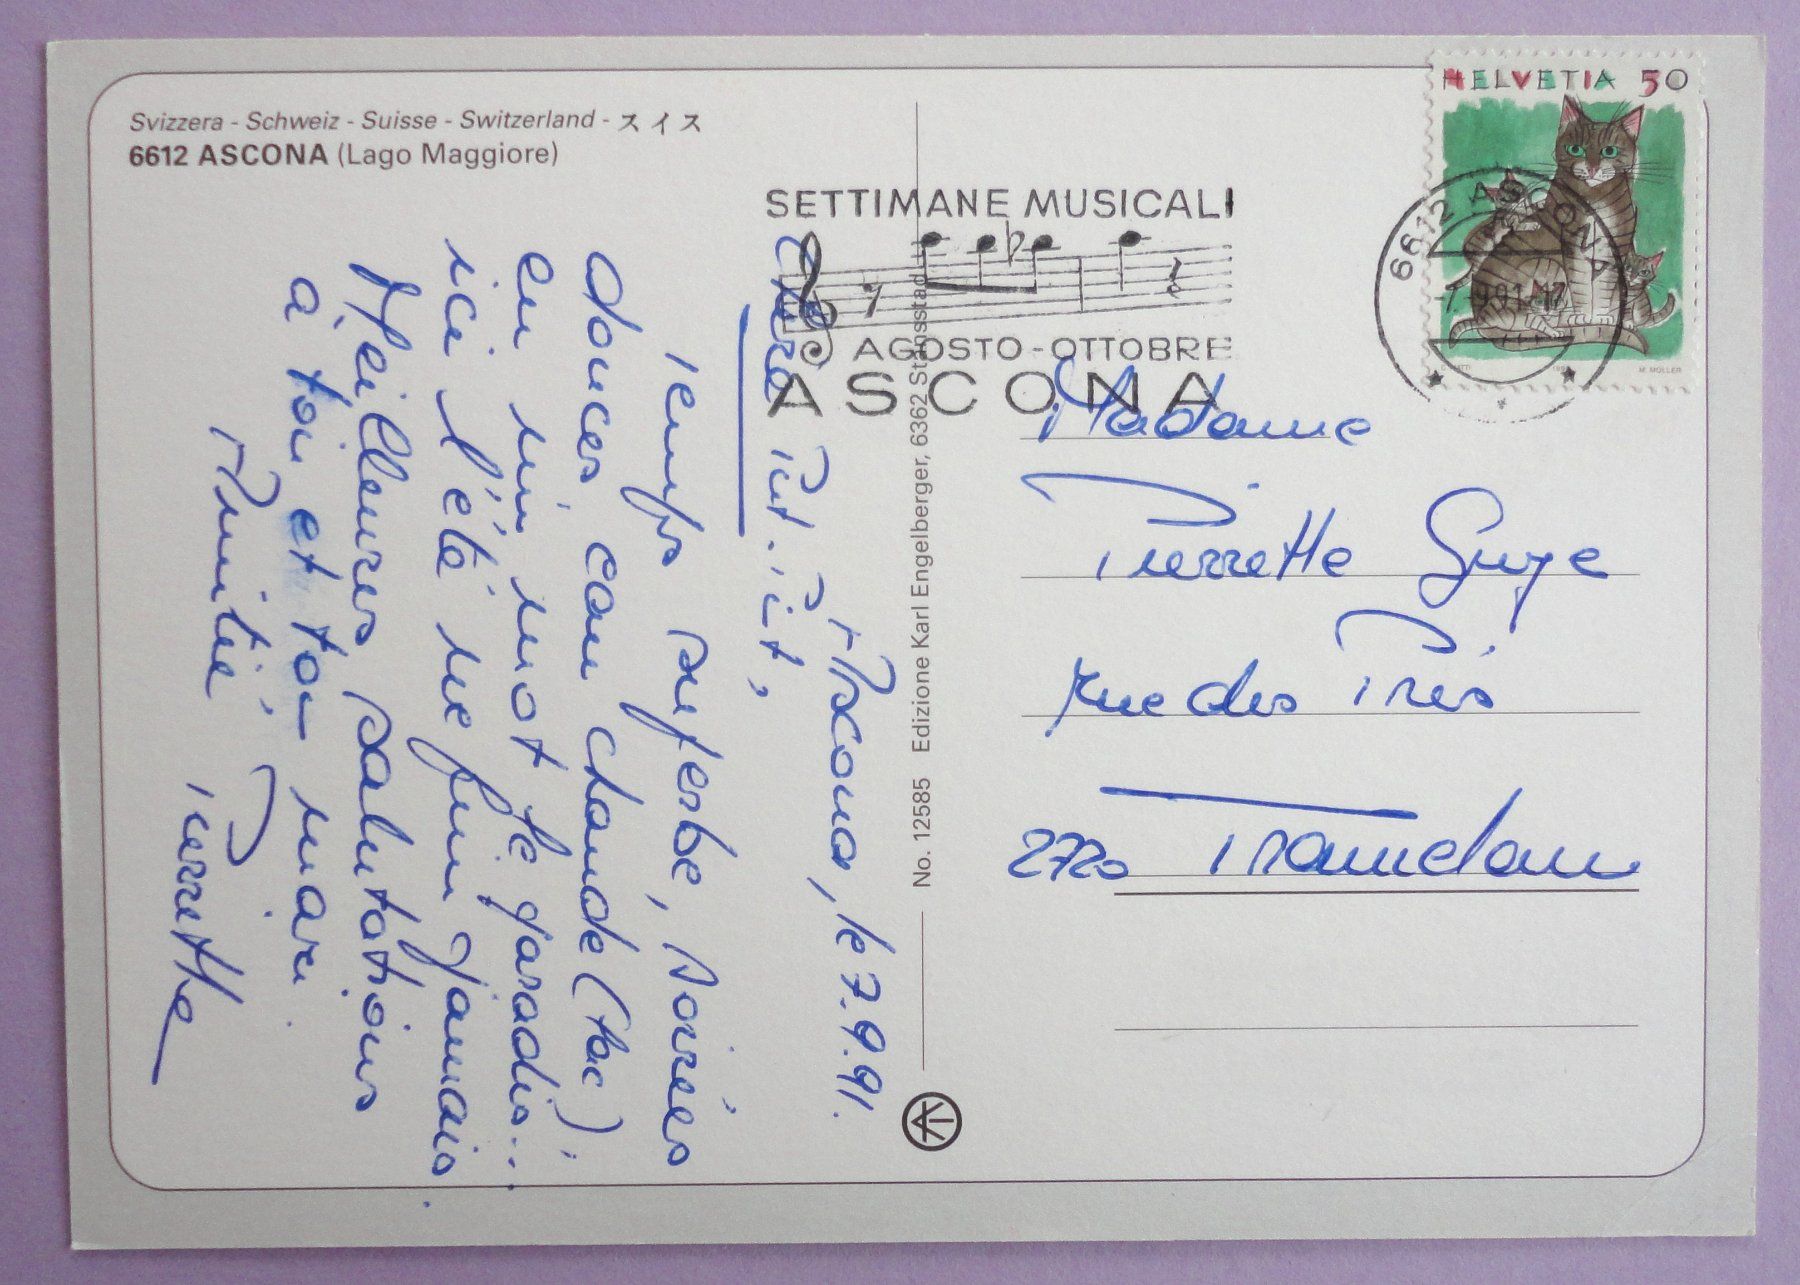 Svizzera - Schweiz - Suisse - Switzerland - スイス
6612 ASCONA (Lago Maggiore)
HELVETIA 50
M. MÜLLER
6612 ASCONA
-7.-9.91.-17
SETTIMANE MUSICALI
AGOSTO-OTTOBRE
ASCONA
No. 12585 Edizione Karl Engelberger, 6362 Stansstad
Ascona, le 7.9.91.
Pit,
Temps superbe, soirées
douces, eau chaude (lac)
en un mot le paradis...
ici l'été ne finit jamais.
Meilleures salutations
à toi et ton mari
Amitié, Pierrette
Madame
Pierrette Gyge
rue des Prés
2720 Tramelan